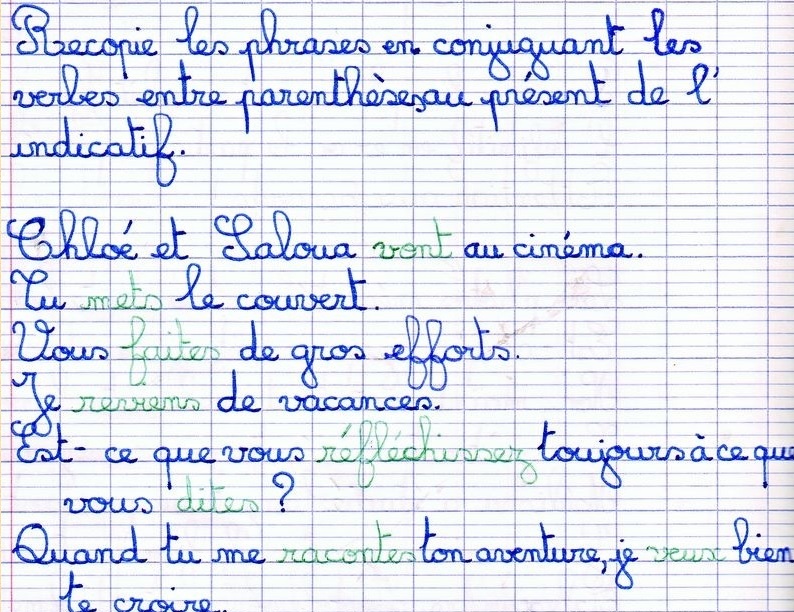 Recopie les phrases en conjuguant les
verbes entre parenthèses au présent de l'
indicatif.
Chloé et Saloua vont au cinéma.
Tu mets le couvert.
Vous faites de gros efforts.
Je reviens de vacances.
Est-ce que vous réfléchissez toujours à ce que
vous dites ?
Quand tu me racontes ton aventure, je veux bien
te croire.